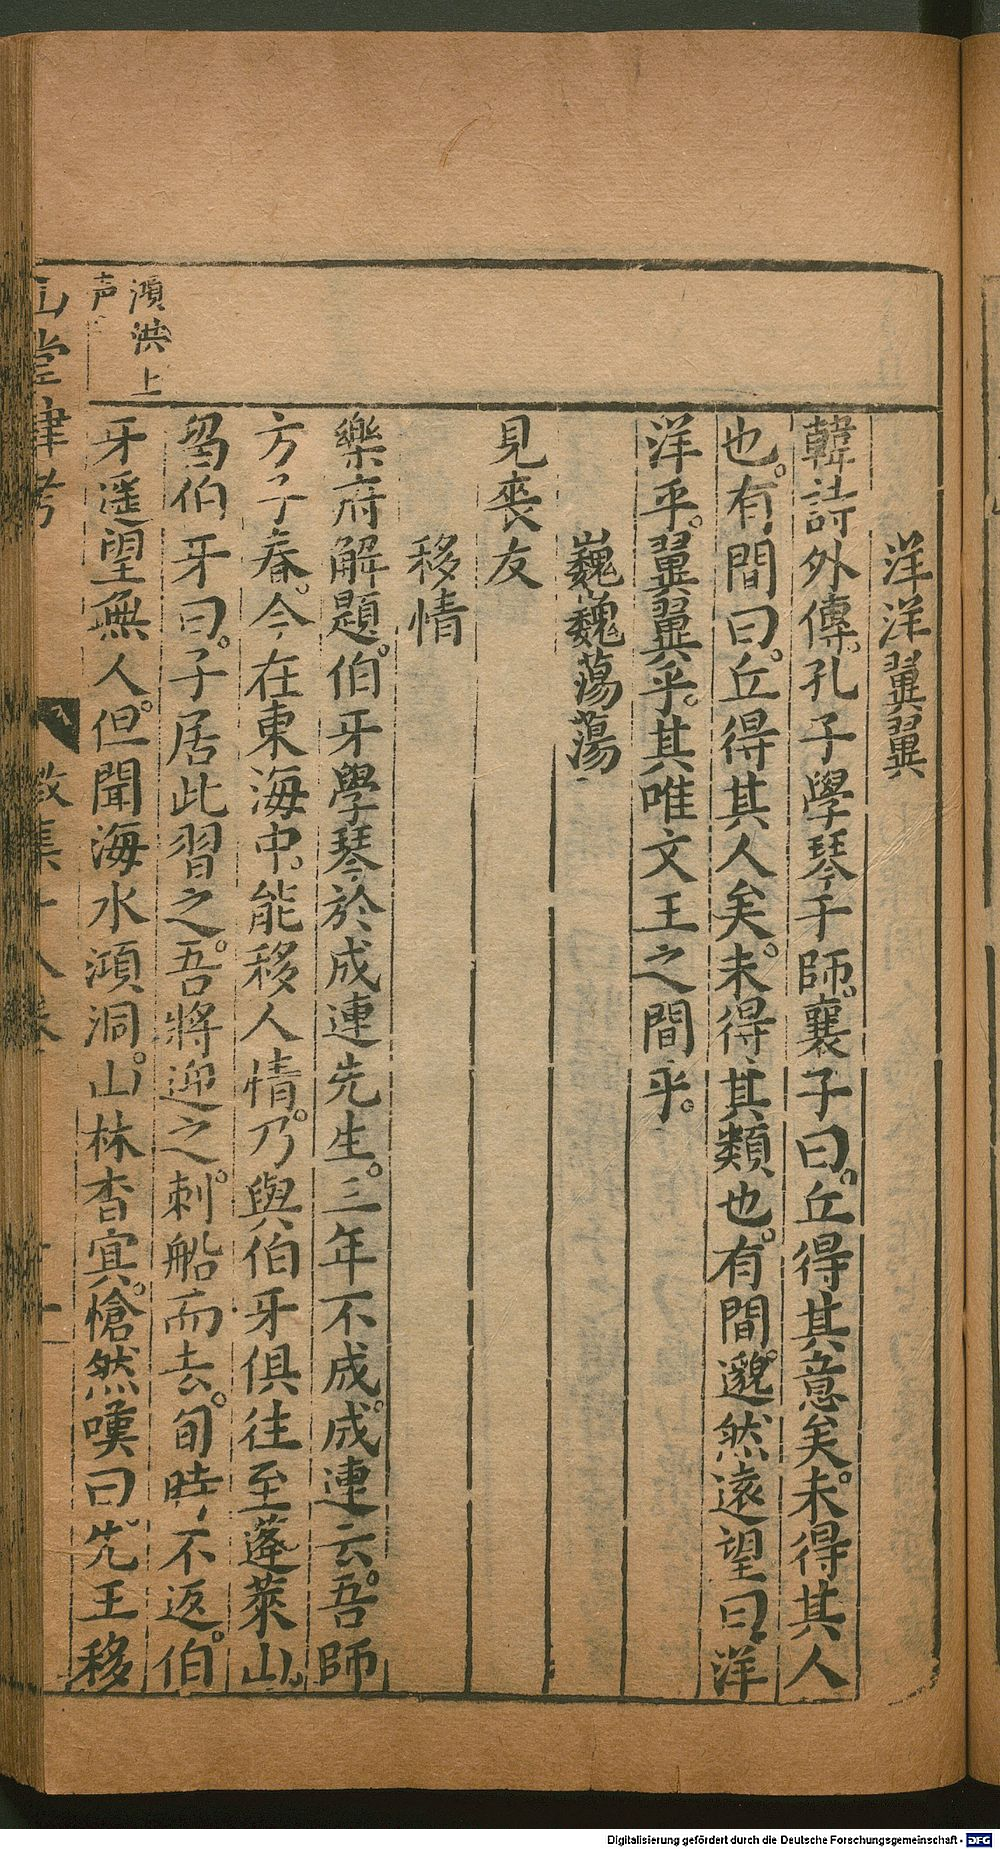 洋洋翼翼
韓詩外傳。孔子學琴于師襄。襄子曰。丘得其意矣。未得其人
也。有間曰。丘得其人矣。未得其類也。有間。邈然遠望曰。洋
洋乎。翼翼乎。其唯文王之間乎。
巍巍蕩蕩
見喪友
移情
樂府解題。伯牙學琴於成連先生。三年不成。成連云。吾師
方子春。今在東海中。能移人情。乃與伯牙俱往至蓬萊山。
留伯牙曰。子居此習之。吾將迎之。刺船而去。旬時不返。伯
牙遥望無人。但聞海水澒洞。山林杳㝠。愴然嘆曰。先王移
澒洪上
声
堂肆考
徵集十八卷
十
Digitalisierung gefördert durch die Deutsche Forschungsgemeinschaft - DFG